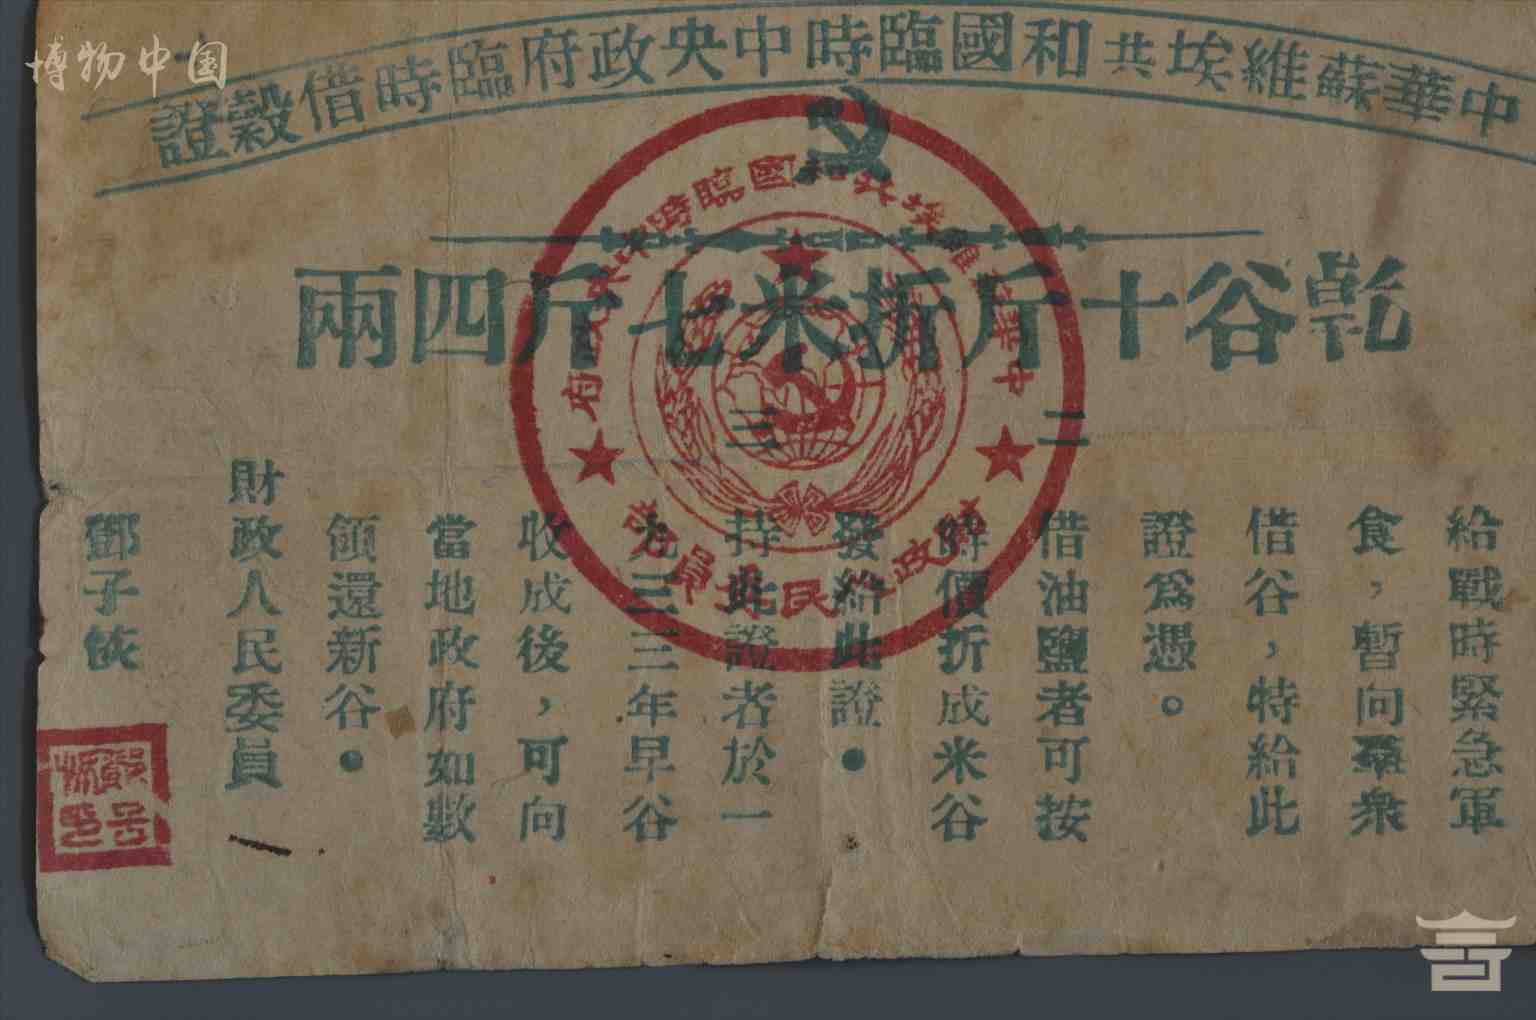 博物中国
中華蘇維埃共和國臨時中央政府臨時借穀證
乾谷十斤折米七斤四兩
給戰時緊急軍
食，暫向羣衆
借谷，特給此
證爲憑。
二
借油鹽者可按
價折成米谷
發給此證。
三
持此證者於一
九三三年早谷
收成後，可向
當地政府如數
領還新谷。
財政人民委員
鄧子恢
中華蘇維埃共和國臨時中央政府
財政人民委員